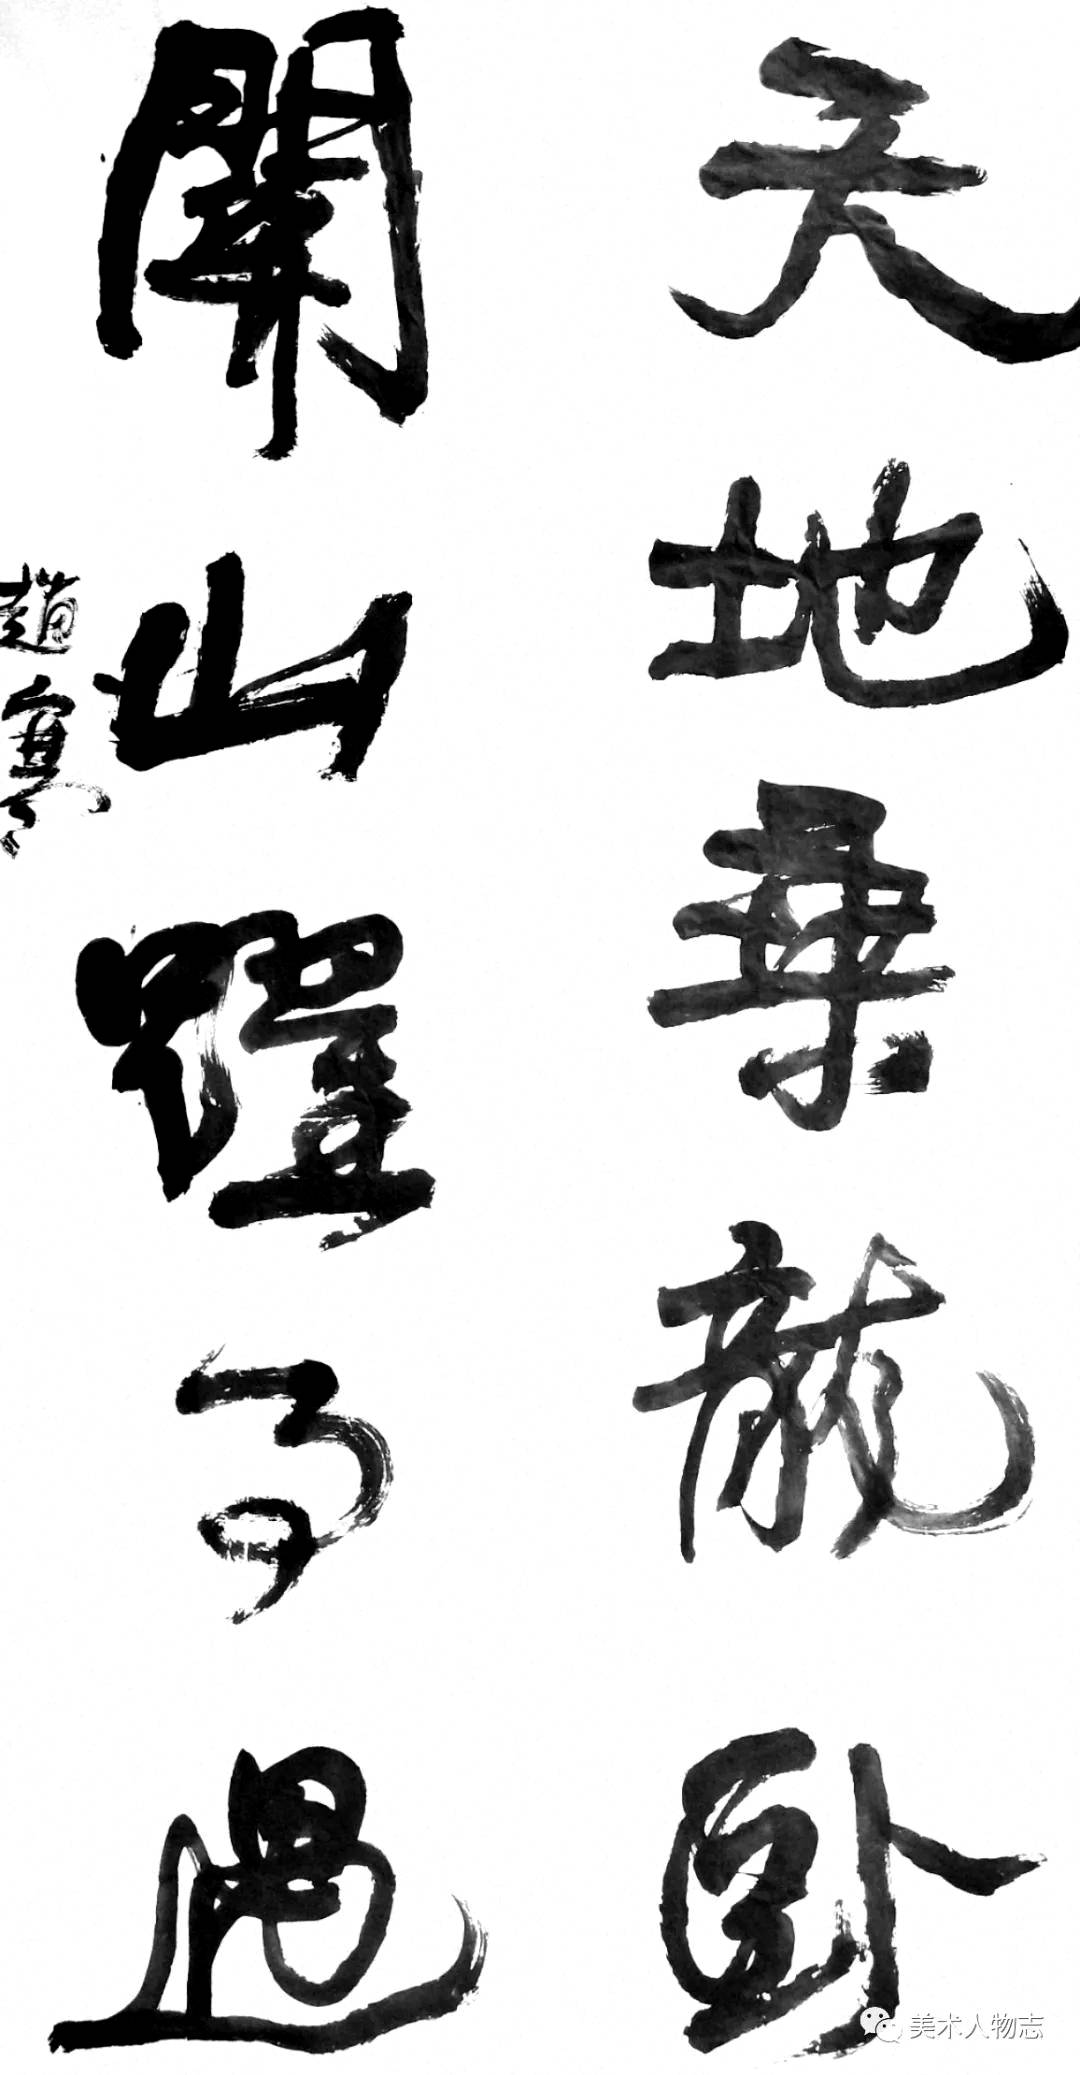 天地乘龍卧
關山躍馬過
趙寒
美术人物志